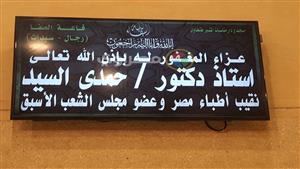 قاعة الصفا
(رجال - سيدات)
إنا لله وإنا إليه راجعون
عزاء المغفور له بإذن الله تعالى
استاذ دكتور / حمدى السيد
نقيب أطباء مصر وعضو مجلس الشعب الأسبق